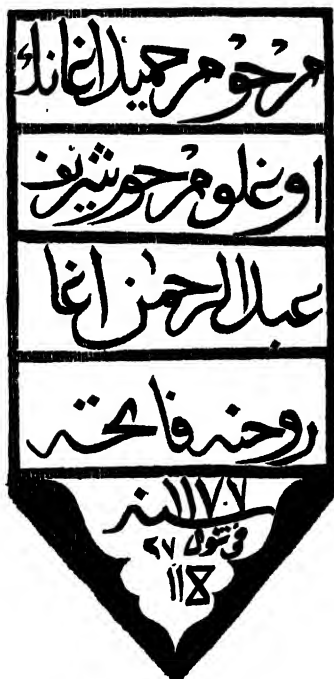 مرحوم حميد اغانك
اوغلو مرحوم شريف
عبد الرحمن اغا
روحنه فاتحه
سنه ١١٧٠٧
في شول ٢٧